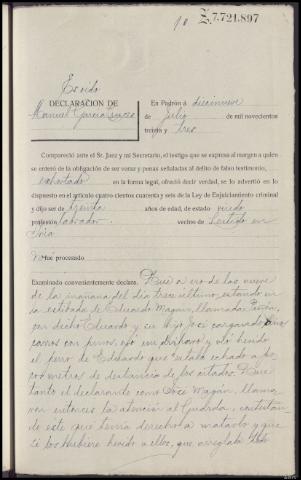 10 Z.7.721.897
Es oido
DECLARACION DE
Manuel García
En Padrón á diecinueve
de Julio de mil novecientos
treinta y tres
Compareció ante el Sr. Juez y mi Secretario, el testigo que se expresa al margen a quien
se enteró de la obligación de ser veraz y penas señaladas al delito de falso testimonio,
exhortado en la forma legal, ofreció decir verdad, se lo advertió en lo
dispuesto en el artículo cuatro cientos cuarenta y seis de la Ley de Enjuiciamiento criminal
y dijo ser de treinta años de edad, de estado viudo
profesión labrador. vecino de Lestido en
Iria
No fué procesado
Examinado convenientemente declara. Que a eso de las nueve
de la mañana del día trece último, estando en
la de Eduardo Magán, llamada
por dicho Eduardo y su hijo José cargando
carros con pinos, oyó un disparo y vio herido
el perro de Eduardo que estaba echado a
metros de distancia de los citados. Que
tanto el declarante como José Magán, llama-
ron entonces la atención al Guarda, contestan-
do este que tenía derecho a matarlo y que
si los hubiere herido a ellos, que